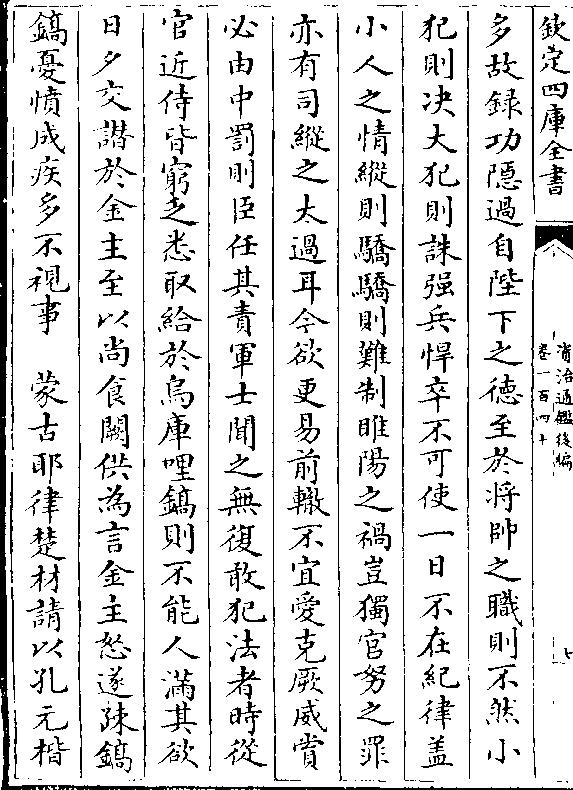 欽定四庫全書
資治通鑑後編
卷一百四十
七
多故録功隱過自陛下之徳至於將帥之職則不然小
犯則决大犯則誅强兵悍卒不可使一日不在紀律盖
小人之情縱則驕驕則難制睢陽之禍豈獨官努之罪
亦有司縱之太過耳今欲更易前轍不宜愛克厥威賞
必由中罰則臣任其責軍士聞之無復敢犯法者時從
官近侍皆窮乏悉取給於烏庫哩鎬鎬則不能人滿其欲
日夕交譖於金主至以尚食闕供為言金主怒遂疎鎬
鎬憂憤成疾多不視事　蒙古耶律楚材請以孔元楷